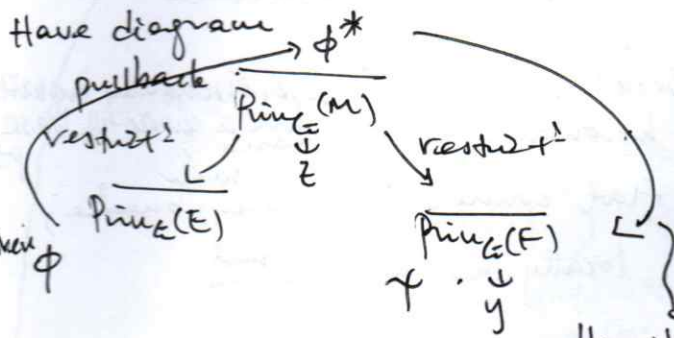 Have diagram
ϕ*
pullback
Prin_G(M)
restrict
restrict
z
Prin_E(E)
Prin_G(F)
ϕ
γ
y